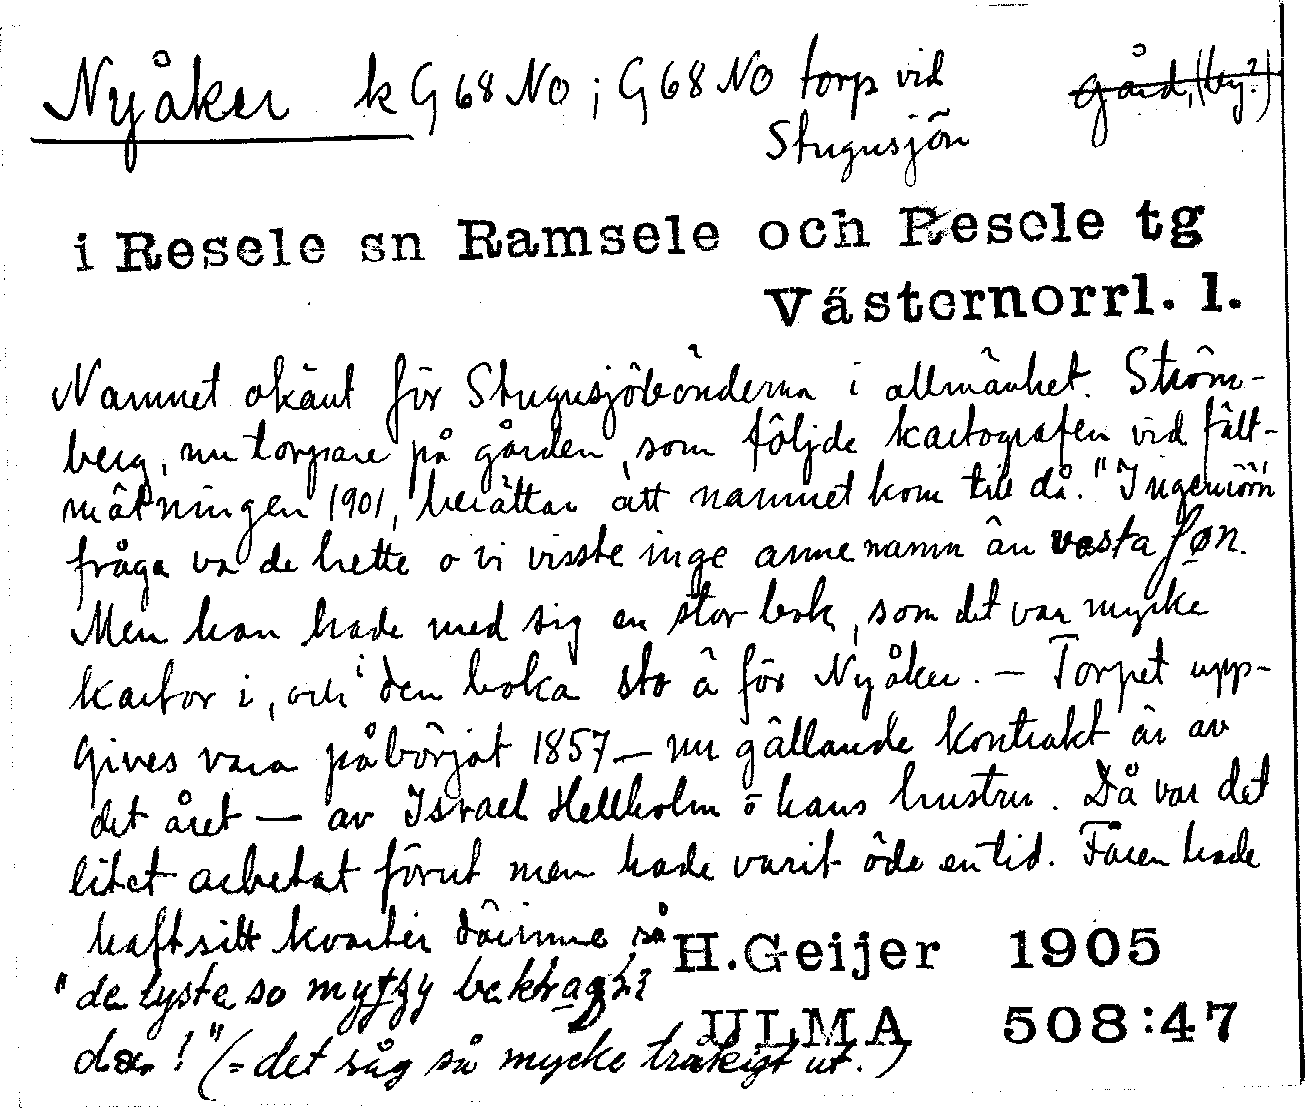 Nyåker k G 68 NO ; G 68 NO torp vid gård, (by?)
Stugusjön
i Resele sn Ramsele och Resele tg
Västernorrl. l.
Namnet okänt för Stugusjöbönderna i allmänhet. Ström-
berg, nu torpare på gården, som följde kartografen vid fält-
mätningen 1901, berättar att namnet kom till då. "Ingeniörn
fråga va de hette o vi visste inge anne namn än vesta føn.
Men han hade med sig en stor bok, som det var mycke
kartor i, och i den boka sto å för Nyåker. — Torpet upp-
gives vara påbörjat 1857 — nu gällande kontrakt är av
det året — av Israel Hellholm o hans hustru. Då var det
litet arbetat förut men hade varit öde en tid. Fåren hade
haft sitt kvarter därinne så
"de lyste so
da. !" (= det såg så mycke tråkigt ut.)
H. Geijer 1905
ULMA 508:47